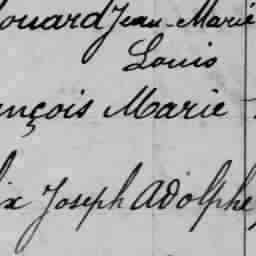 ouard Jean-Marie
Louis
nçois Marie
ix Joseph Adolphe